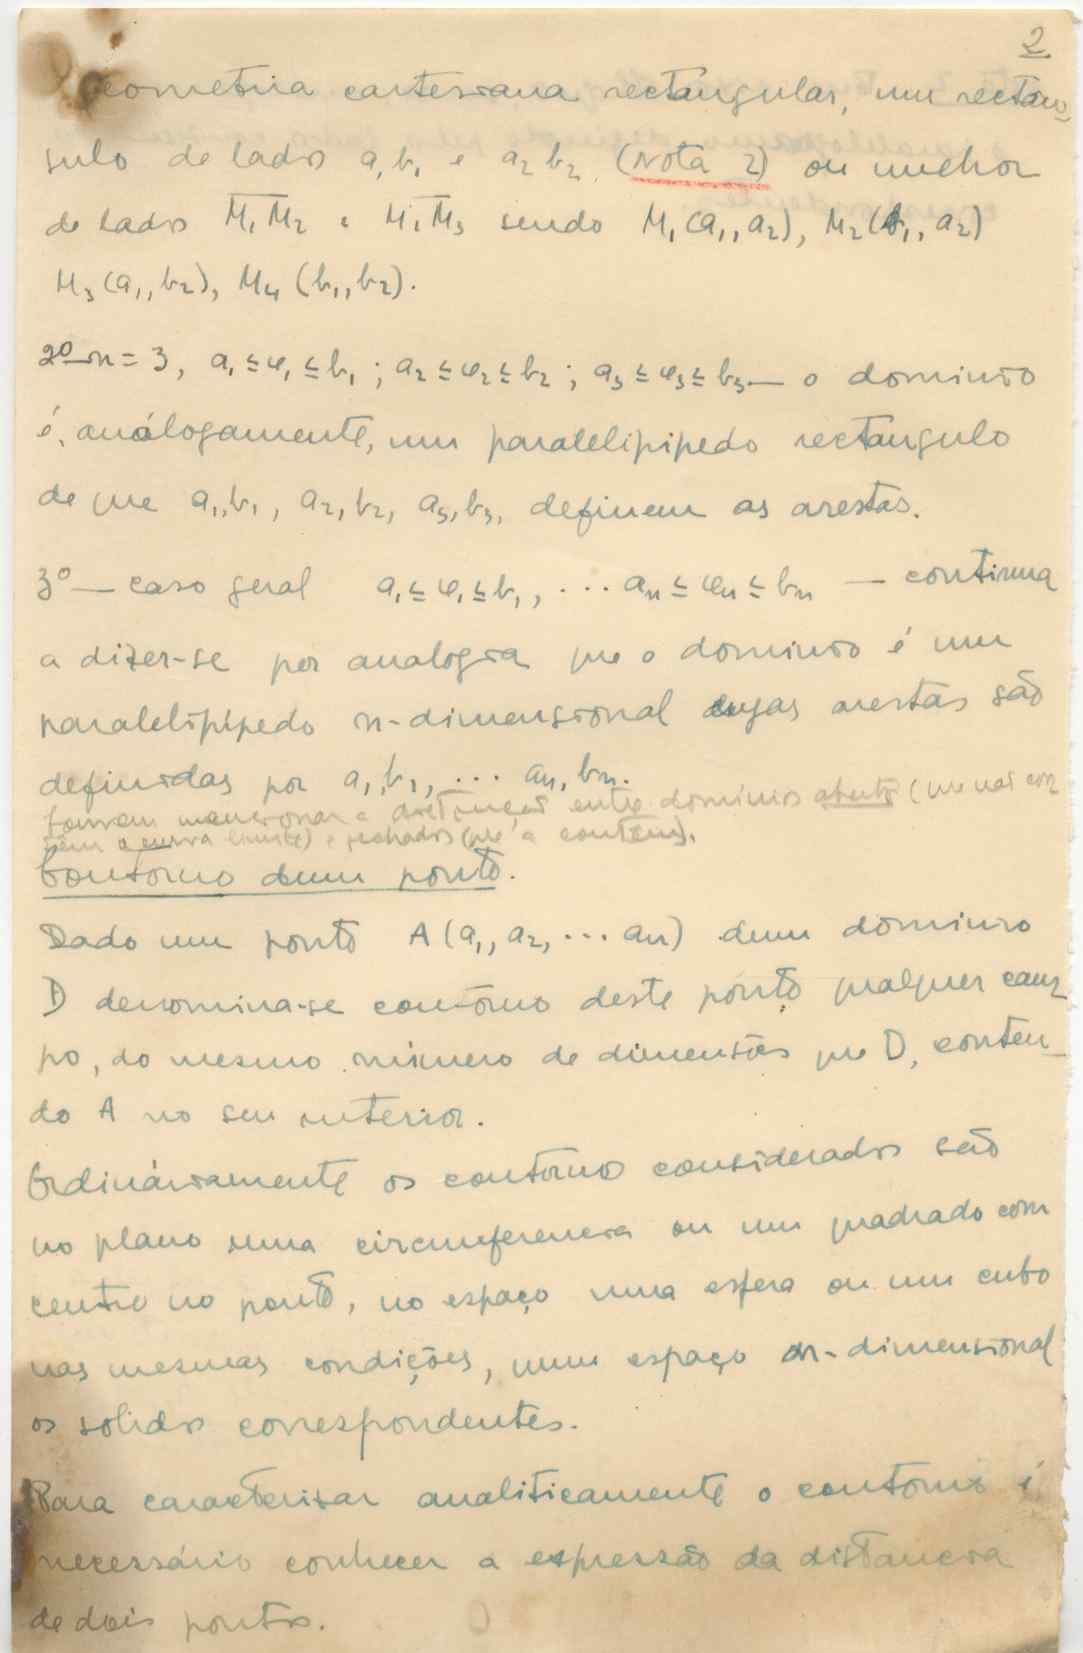 2
geometria cartesiana rectangular, um rectân-
gulo de lados a,b₁ e a₂ b₂. (Nota 2) ou melhor
de lados M₁M₂ e M₁M₃ sendo M₁(a₁,a₂), M₂(b₁,a₂)
M₃(a₁,b₂), M₄(b₁,b₂).
2º—n=3, a₁≤φ₁≤b₁; a₂≤φ₂≤b₂; a₃≤φ₃≤b₃— o dominio
é, análogamente, um paralelipipedo rectangulo
de que a₁,b₁, a₂,b₂, a₃,b₃, definem as arestas.
3º— caso geral a₁≤φ₁≤b₁, ... aₙ≤φₙ≤bₙ — continua
a dizer-se por analogia que o dominio é um
paralelipípedo n-dimensional cujas arestas são
definidas por a₁,b₁, ... aₙ,bₙ.
mencionar a distinção entre dominios abertos (que não con
têm a curva limite) e fechados (que a contêm).
Contorno dum ponto.
Dado um ponto A(a₁, a₂, ... aₙ) dum dominio
D denomina-se contorno deste ponto qualquer cam
po, do mesmo número de dimensões que D, conten-
do A no seu interior.
Ordináriamente os contorno considerados são
no plano uma circunferencia ou um quadrado com
centro no ponto, no espaço uma esfera ou um cubo
nas mesmas condições, num espaço n-dimensional
os solidos correspondentes.
Para caracterisar analiticamente o contorno é
necessário conhecer a expressão da distancia
de dois pontos.